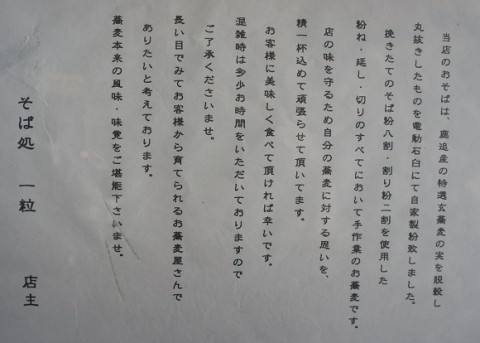 当店のおそばは、鹿追産の特選玄蕎麦の実を脱殻し
丸抜きしたものを電動石臼にて自家製粉致しました。
挽きたてのそば粉八割・割り粉二割を使用した
粉ね・延し・切りのすべてにおいて手作業のお蕎麦です。
店の味を守るため自分の蕎麦に対する思いを、
精一杯込めて頑張らせて頂いてます。
お客様に美味しく食べて頂ければ幸いです。
混雑時は多少お時間をいただいておりますので
ご了承くださいませ。
長い目でみてお客様から育てられるお蕎麦屋さんで
ありたいと考えております。
蕎麦本来の風味・味覚をご堪能下さいませ。
そば処 一粒 店主